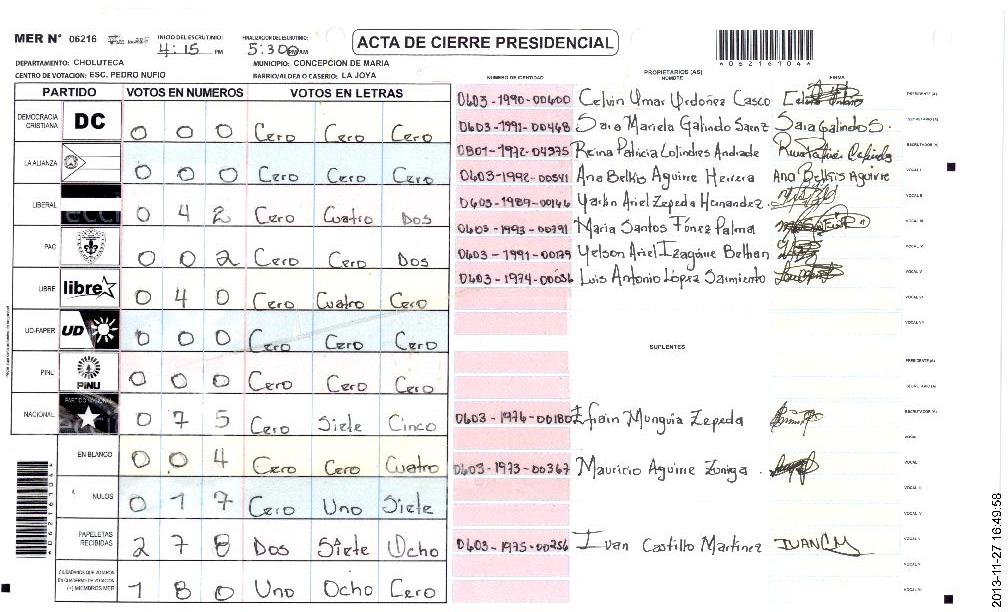 MER N° 06216 INICIO DEL ESCRUTINIO: 4:15 PM FINALIZACION DEL ESCRUTINIO: 5:30 PM
ACTA DE CIERRE PRESIDENCIAL
*062161044*
DEPARTAMENTO: CHOLUTECA MUNICIPIO: CONCEPCION DE MARIA
CENTRO DE VOTACION: ESC. PEDRO NUFIO BARRIO/ALDEA O CASERIO: LA JOYA
PARTIDO VOTOS EN NUMEROS VOTOS EN LETRAS
DEMOCRACIA CRISTIANA DC 0 0 0 Cero Cero Cero
LA ALIANZA 0 0 0 Cero Cero Cero
LIBERAL 0 4 2 Cero Cuatro Dos
PAC 0 0 2 Cero Cero Dos
LIBRE libre 0 4 0 Cero Cuatro Cero
UD-FAPER UD 0 0 0 Cero Cero Cero
PINU PINU 0 0 0 Cero Cero Cero
NACIONAL PARTIDO NACIONAL 0 7 5 Cero Siete Cinco
EN BLANCO 0 0 4 Cero Cero Cuatro
NULOS 0 1 7 Cero Uno Siete
PAPELETAS RECIBIDAS 2 7 8 Dos Siete Ocho
CIUDADANOS QUE VOTARON EN CUADERNO DE VOTACION (+) MIEMBROS MER 1 8 0 Uno Ocho Cero
PROPIETARIOS (AS)
NUMERO DE IDENTIDAD NOMBRE FIRMA
0603-1990-00600 Celvin Omar Ordoñez Casco PRESIDENTE (A)
0603-1991-00468 Sara Mariela Galindo Saenz Sara Galindo S. SECRETARIO (A)
0801-1972-04975 Reina Patricia Colindres Andrade ESCRUTADOR (A)
0603-1992-00541 Ana Belkis Aguirre Herrera Ana Belkis Aguirre VOCAL I
0603-1989-00146 Yarkin Ariel Zepeda Hernandez. VOCAL II
0603-1993-00791 Maria Santos Fúnez Palma VOCAL III
0603-1991-00179 Yelson Ariel Izaguirre Bethan VOCAL IV
0603-1974-00056 Luis Antonio López Sarmiento VOCAL V
VOCAL VI
VOCAL VII
SUPLENTES
PRESIDENTE (A)
SECRETARIO (A)
0603-1976-00180 Efrain Munguia Zepeda ESCRUTADOR (A)
VOCAL
0603-1973-00367 Mauricio Aguirre Zuniga VOCAL
0603-1975-00256 Ivan Castillo Martinez IVAN C M
2013-11-27 16:49:58